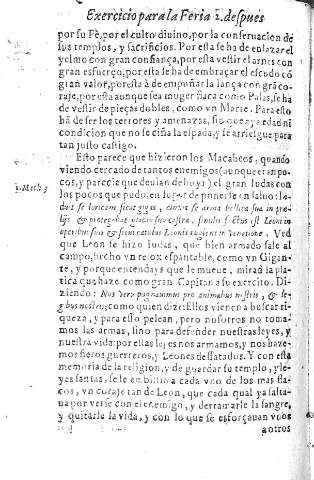 Exercicio para la Feria 2. despues
por su Fè, por el culto diuino, por la conseruacion de
sus templos, y sacrificios. Por esta se ha de enlazar el
yelmo con gran confiança, por esta vestir el arnes con
gran esfuerço, por esta se ha de embraçar el escudo cõ
gran valor, por esta à de empuñar la lança con grã co-
raje, por esta aunque sea muger flaca como Palas, se ha
de vestir de pieças dobles, como vn Marte. Para esto
hã de ser los terrores y amenazas, sin que aya edad ni
condicion que no se ciña la espada, y se arriesgue para
tan justo castigo.
Esto parece que hizieron los Macabeos, quando
viendo cercado de tantos enemigos (aunque eran po-
cos, y parecia que deuian de huyr) el gran Iudas con
los pocos que pudo, en lugar de ponerse en saluo: In-
1. Mach. 3
duit se loricam sicut gigas, cinxit se arma bellica sua in præ-
lijs & protegebat gladio suo castra, similis factus est Leoni in
operibus suis & sicut catulus Leonis rugiens in venatione. Ved
que Leon se hizo Iudas, que bien armado sale al
campo, hecho vn relox espantable, como vn Gigan-
te, y porque entendays que le mueue, mirad la pla-
tica que haze como gran Capitan a su exercito. Di-
ziendo: Nos vero pugnamus pro animabus nostris, & le-
gibus nostris, como quien dize: Ellos vienen a buscar ri-
queza, y para esso pelean, pero nosotros no toma-
mos las armas, sino para defender nuestras leyes, y
nuestra vida: por ellas leyes nos armamos, y nos haze-
mos fieros guerreros, y Leones desatados. Y con esta
memoria de la religion, y de guardar su templo, y le-
yes santas, se le embistio a cada vno de los mas fla-
cos, vn coraje tan de Leon, que cada qual ya salta-
ua por verse con el enemigo, y derramarle la sangre,
y quitarle la vida, y con lo que se esforçauan vnos
a otros